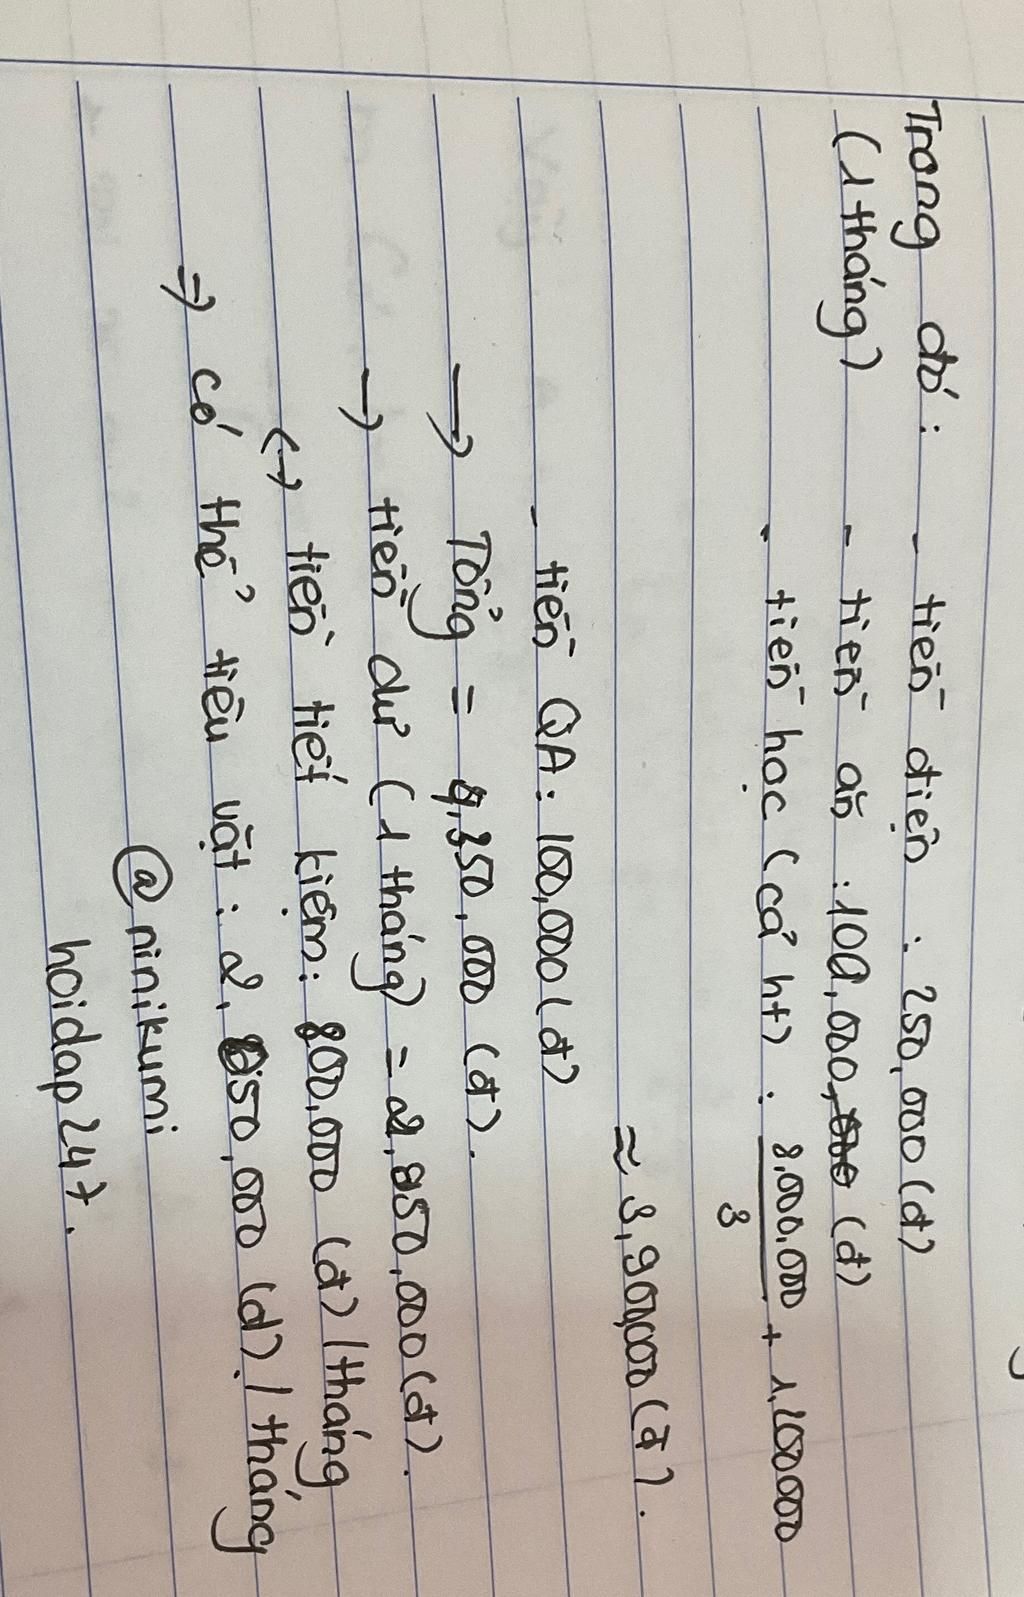 Trong đó : - tiền điện : 250,000 (đ)
(1 tháng) - tiền ăn : 100,000, (đ)
- tiền học (cả ht) : 8,000,000/3 + 1,200000
≈ 3,900,000 (đ).
- tiền QA : 100,000 (đ)
→ Tổng = 4,350,000 (đ).
→ tiền dư (1 tháng) = 2,850,000 (đ).
↔ tiền tiết kiệm : 800,000 (đ) / tháng
⇒ có thể tiêu vặt : 2,050,000 (đ). / tháng
@ninikumi
hoidap247.